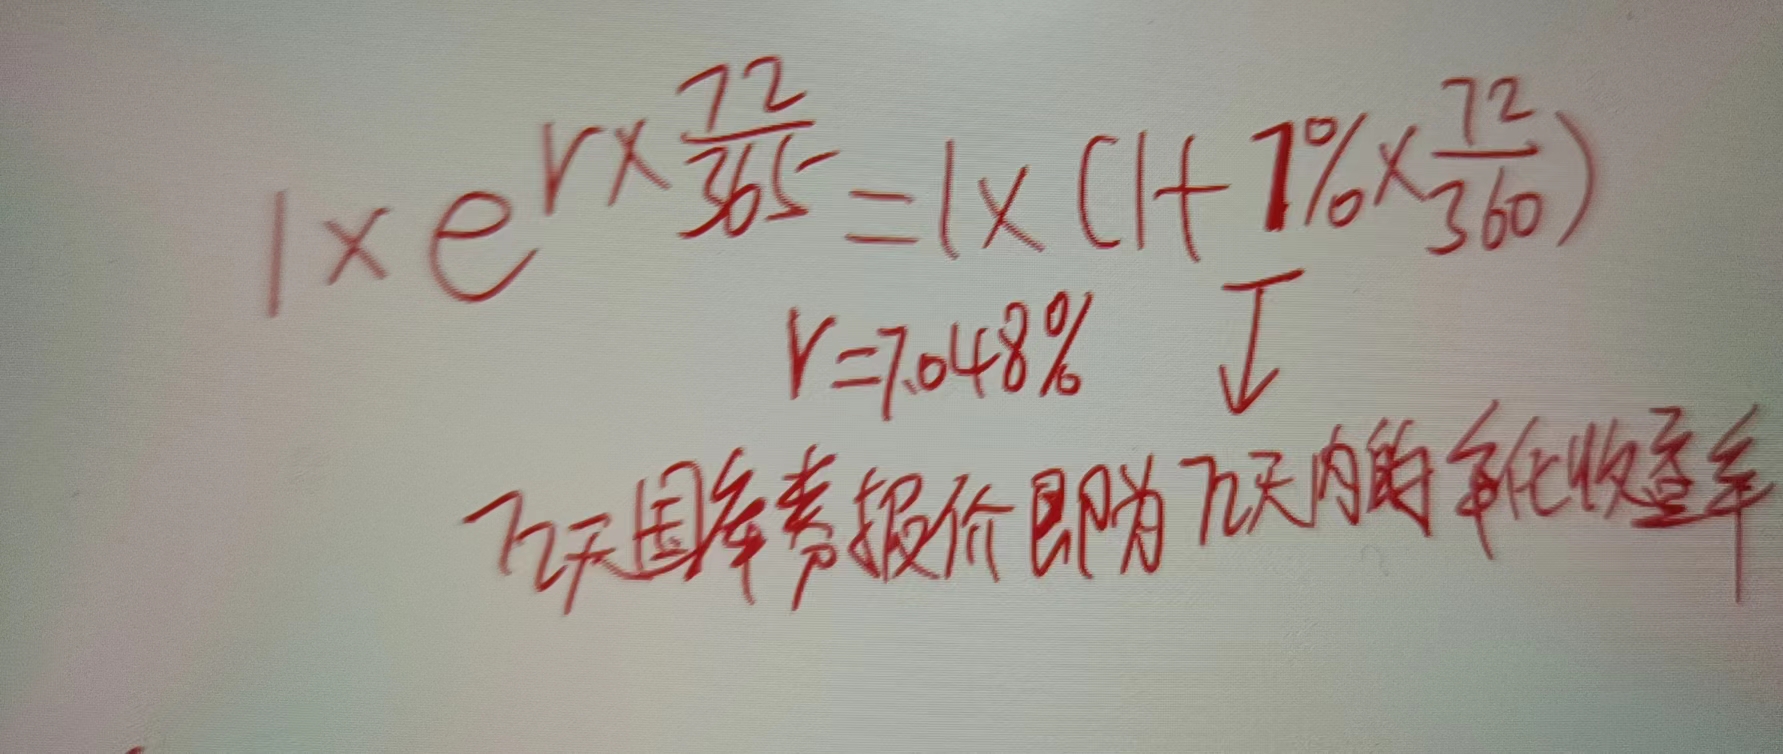 1×e^{r×\frac{72}{365}}=1×(1+7%×\frac{72}{360})
r=7.048% ↓
72天国库券报价即为72天内的年化收益率